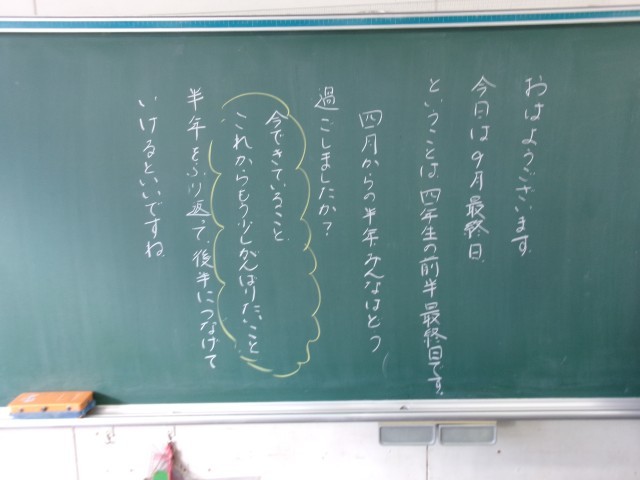 おはようございます
今日は9月最終日
ということは 四年生の前半最終日です。
四月からの半年 みんなはどう
過ごしましたか？
今できていること
これからもう少しがんばりたいこと
半年をふり返って、後半につなげて
いけるといいですね